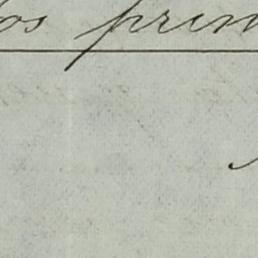 os prim